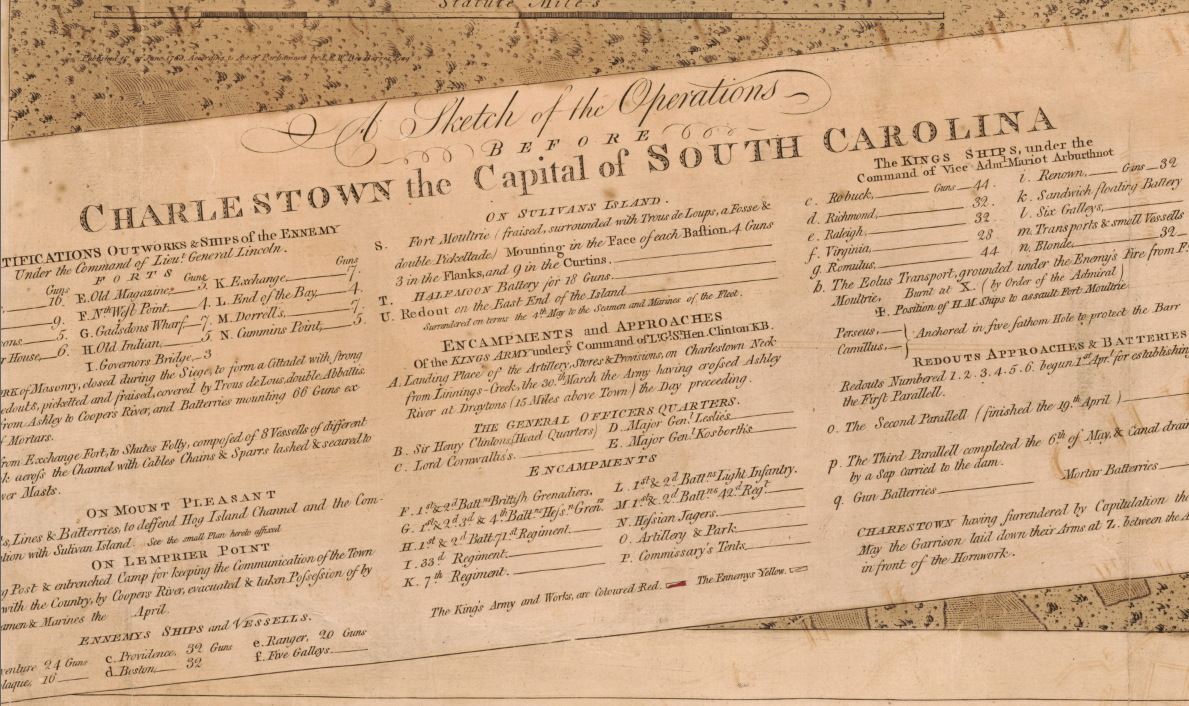 Statute Miles
Published of June 1783 According to Act of Parliament by
A Sketch of the Operations
BEFORE
CHARLESTOWN the Capital of SOUTH CAROLINA
TIFICATIONS OUTWORKS & SHIPS of the ENNEMY
Under the Command of Lieut General Lincoln.
FORTS
Guns Guns Guns
16. E. Old Magazine, 5. K. Exchange, 7.
9. F. Nth West Point, 4. L. End of the Bay, 4.
5. G. Gadsdons Wharf 7. M. Dorrells, 7.
r House, 6. H. Old Indian, 5. N. Cummins Point, 5.
I. Governors Bridge, 3
ORK of Masonry, closed during the Siege, to form a Cittadel with strong
edouts, picketted and fraised, covered by Trous de Lous, double Abbattis.
from Ashley to Coopers River, and Batteries mounting 66 Guns ex-
f Mortars.
from Exchange Fort, to Shutes Folly, composed of 8 Vessells of different
k across the Channel with Cables Chains & Sparrs lashed & secured to
wer Masts.
ON MOUNT PLEASANT
s, Lines & Batterries, to deffend Hog Island Channel and the Com-
tion with Sulivan Island. See the small Plan hereto affixed
ON LEMPRIER POINT
g Post & entrenched Camp for keeping the Communication of the Town
with the Country, by Coopers River, evacuated & taken Possession of by
amen & Marines the April.
ENNEMYS SHIPS and VESSELLS.
venture 24 Guns c. Providence, 32 Guns e. Ranger, 20 Guns
laque, 16 d. Boston, 32 f. Five Galleys.
ON SULIVANS ISLAND.
S. Fort Moultrie (fraised, surrounded with Trous de Loups, a Fosse &
double Pickettade) Mounting in the Face of each Bastion, 4 Guns
3 in the Flanks, and 9 in the Curtins.
T. HALFMOON Battery for 18 Guns.
U. Redout on the East End of the Island
Surrandered on terms the 4th May to the Seamen and Marines of the Fleet.
ENCAMPMENTS and APPROACHES
Of the KINGS ARMY under ye Command of Lt. Gl. Sr. Hen. Clinton KB.
A. Landing Place of the Artillery, Stores & Provisions, on Charlestown Neck
from Linnings-Creek, the 30th March the Army having crossed Ashley
River at Draytons (15 Miles above Town) the Day preceeding.
THE GENERAL OFFICERS QUARTERS.
B. Sir Henry Clintons (Head Quarters) D. Major Genl. Leslie's
C. Lord Cornwallis's. E. Major Genl. Kosborth's
ENCAMPMENTS
F. 1st & 2d Battns Brittish Grenadiers, L. 1st & 2d Battns Light Infantry.
G. 1st & 2d 3d & 4th Battns Hess'n Grenrs M. 1st & 2d Battns 42d Regt.
H. 1st & 2d Batt. 71st Regiment. N. Hessian Jagers.
I. 33d Regiment. O. Artillery & Park.
K. 7th Regiment. P. Commissary's Tents.
The King's Army and Works, are Coloured Red. The Ennemys Yellow.
The KINGS SHIPS, under the
Command of Vice Adml. Mariot Arburthnot
c. Robuck, Guns 44. i. Renown, Guns 32
d. Richmond, 32. k. Sandwich floating Battery
e. Raleigh, 32 l. Six Galleys,
f. Virginia, 28 m. Transports & smell Vessells
g. Romulus, 44 n. Blonde, 32
h. The Eolus Transport, grounded under the Enemy's Fire from F
Moultrie, Burnt at X. (by Order of the Admiral)
Position of H.M. Ships to assault Fort Moultrie
Perseus, Anchored in five fathom Hole to protect the Barr
Camillus,
REDOUTS APPROACHES & BATTERIES
Redouts Numbered 1. 2. 3. 4. 5. 6. begun 1st Apl. for establishing
the First Parallell.
o. The Second Parallell (finished the 19th April)
p. The Third Parallell completed the 6th of May, & Canal drain
by a Sap carried to the dam.
Mortar Batterries
q. Gun Batterries
CHARESTOWN having Surrendered by Capitulation the
May the Garrison laid down their Arms at Z. between the A
in front of the Hornwork.